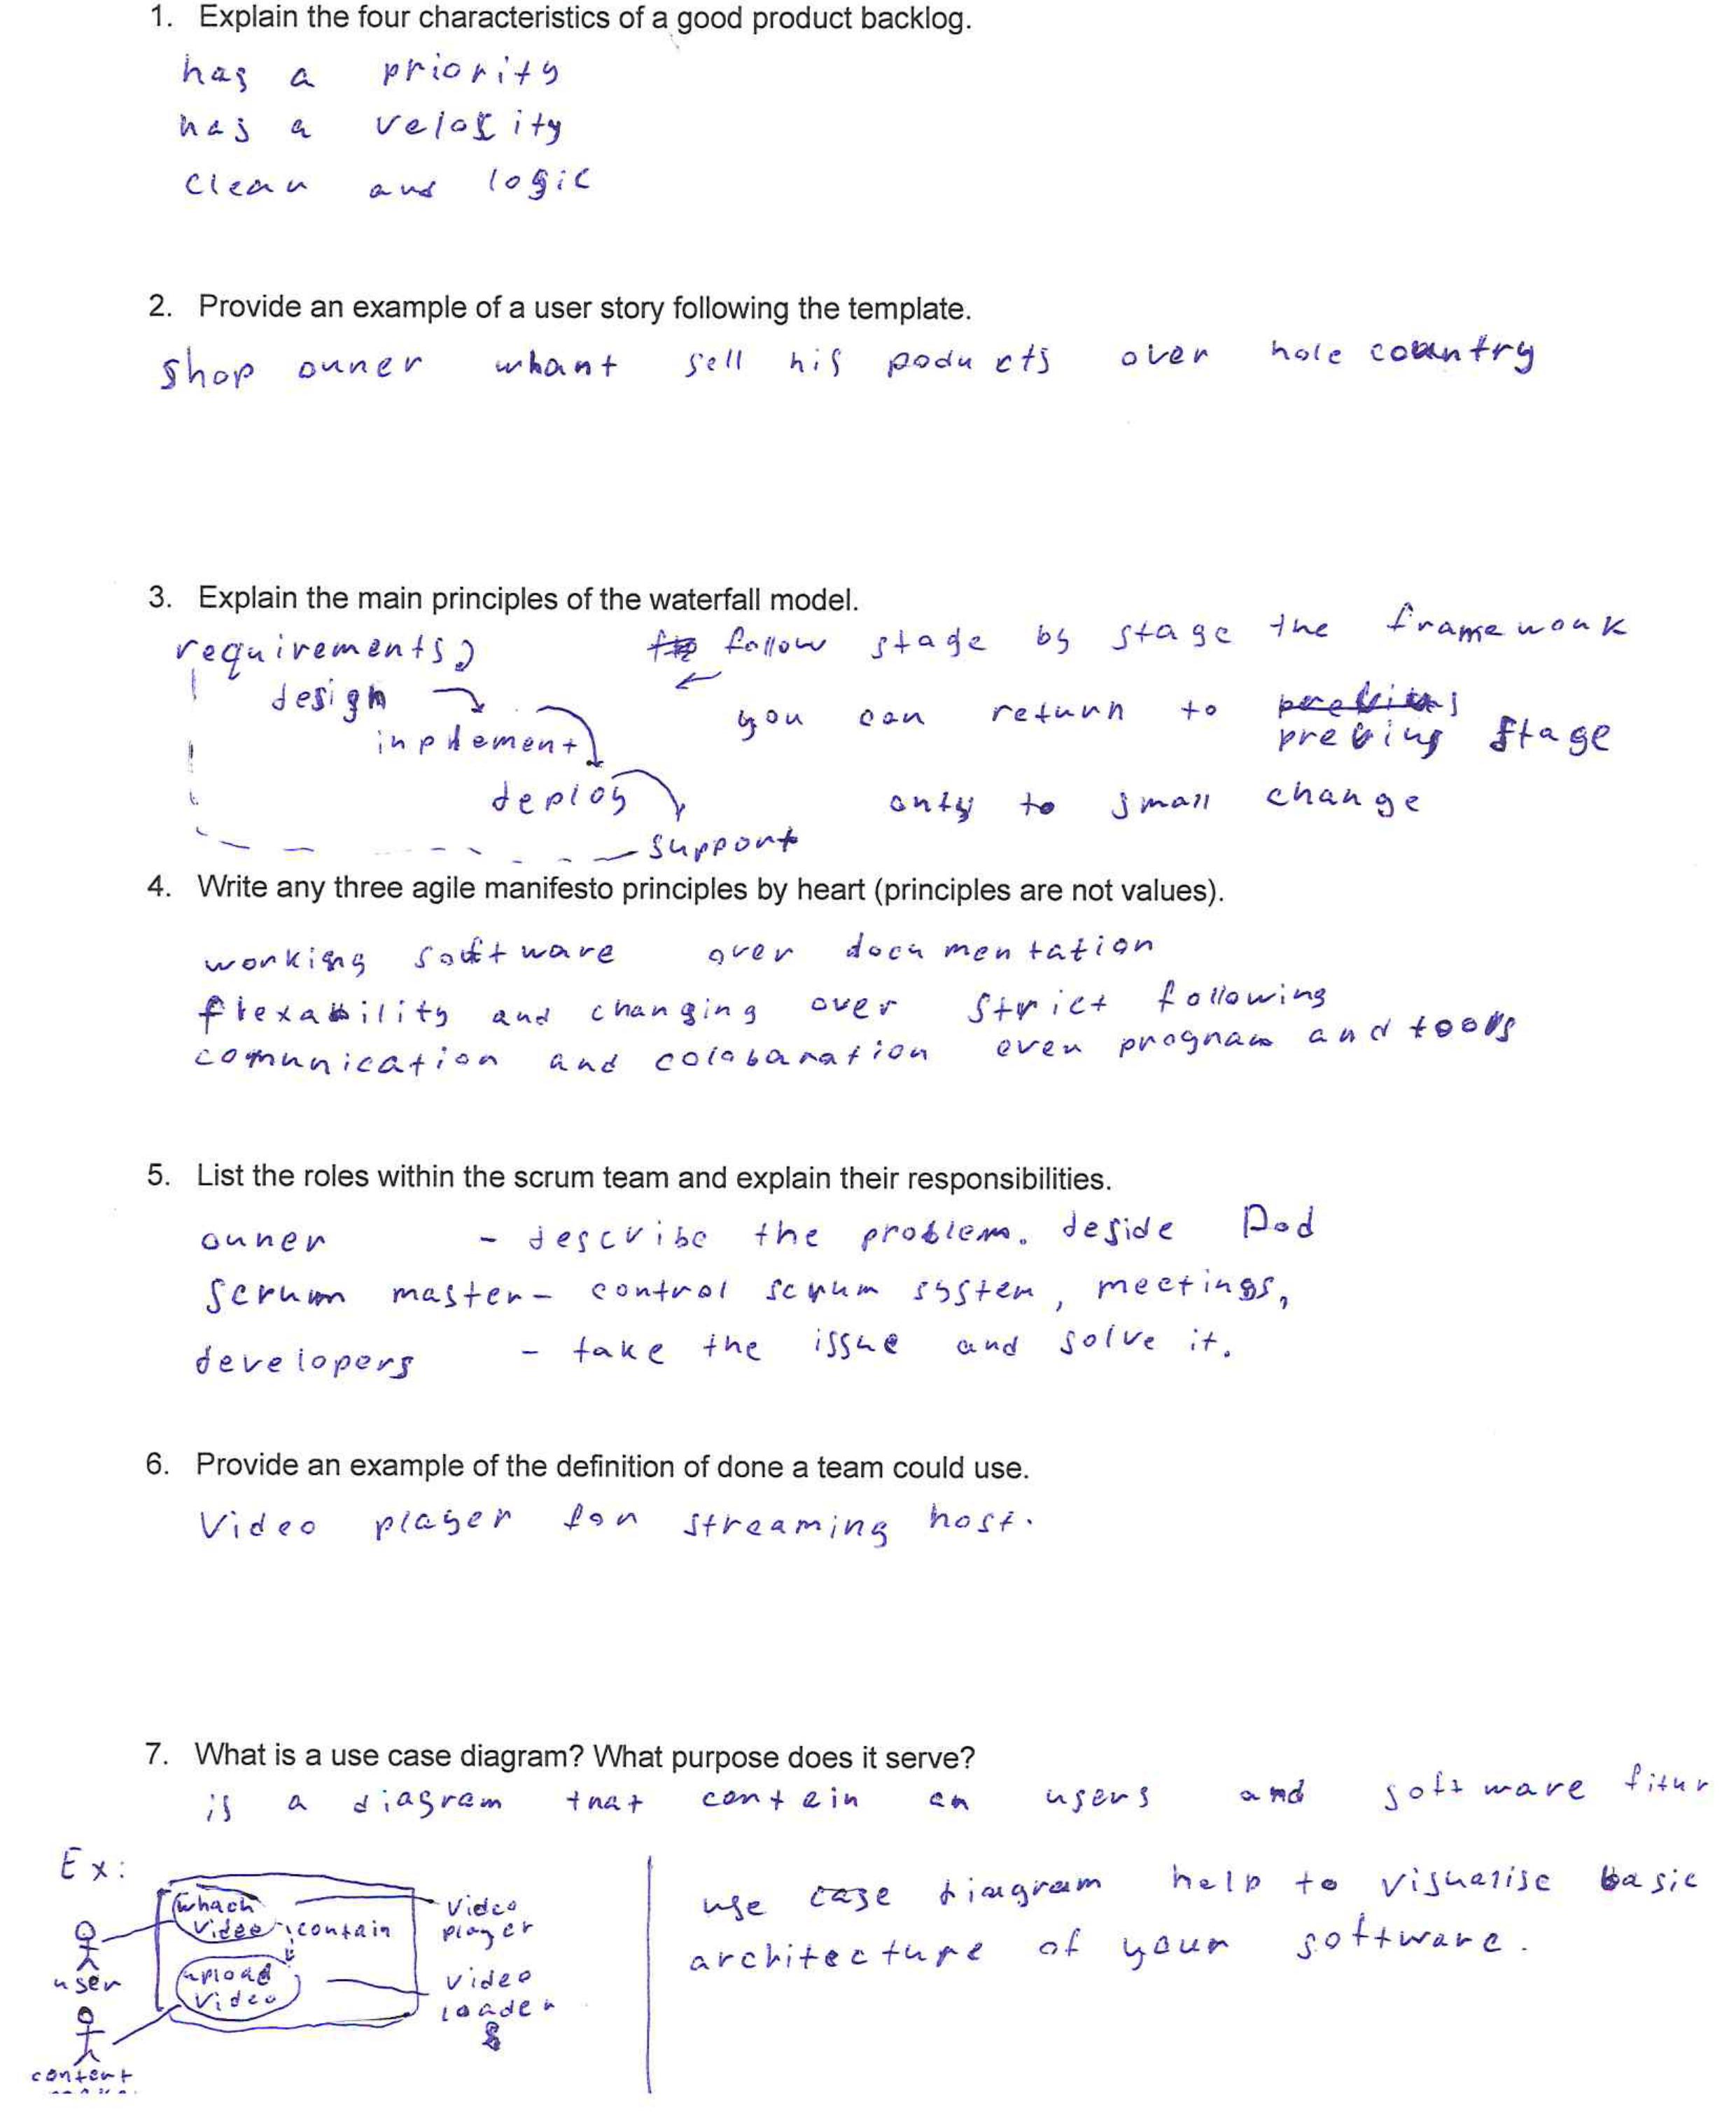 1. Explain the four characteristics of a good product backlog.
has a priority
has a velosity
clean and logic
2. Provide an example of a user story following the template.
shop owner whant sell his poducts over hole country
3. Explain the main principles of the waterfall model.
requirements
design
inplement
deploy
support
follow stage by stage the framework
you can return to
previus stage
only to small change
4. Write any three agile manifesto principles by heart (principles are not values).
working software over documentation
flexability and changing over strict following
comunication and colabaration over program and tools
5. List the roles within the scrum team and explain their responsibilities.
owner - describe the problem. deside Dod
Scrum master - control scrum system, meetings,
developers - take the issue and solve it.
6. Provide an example of the definition of done a team could use.
Video player for streaming host.
7. What is a use case diagram? What purpose does it serve?
is a diagram that contein an users and software fitur
Ex:
whach
video
contain
upload
video
video
player
video
loader
user
content
use case diagram help to visualise basic
architecture of your software.